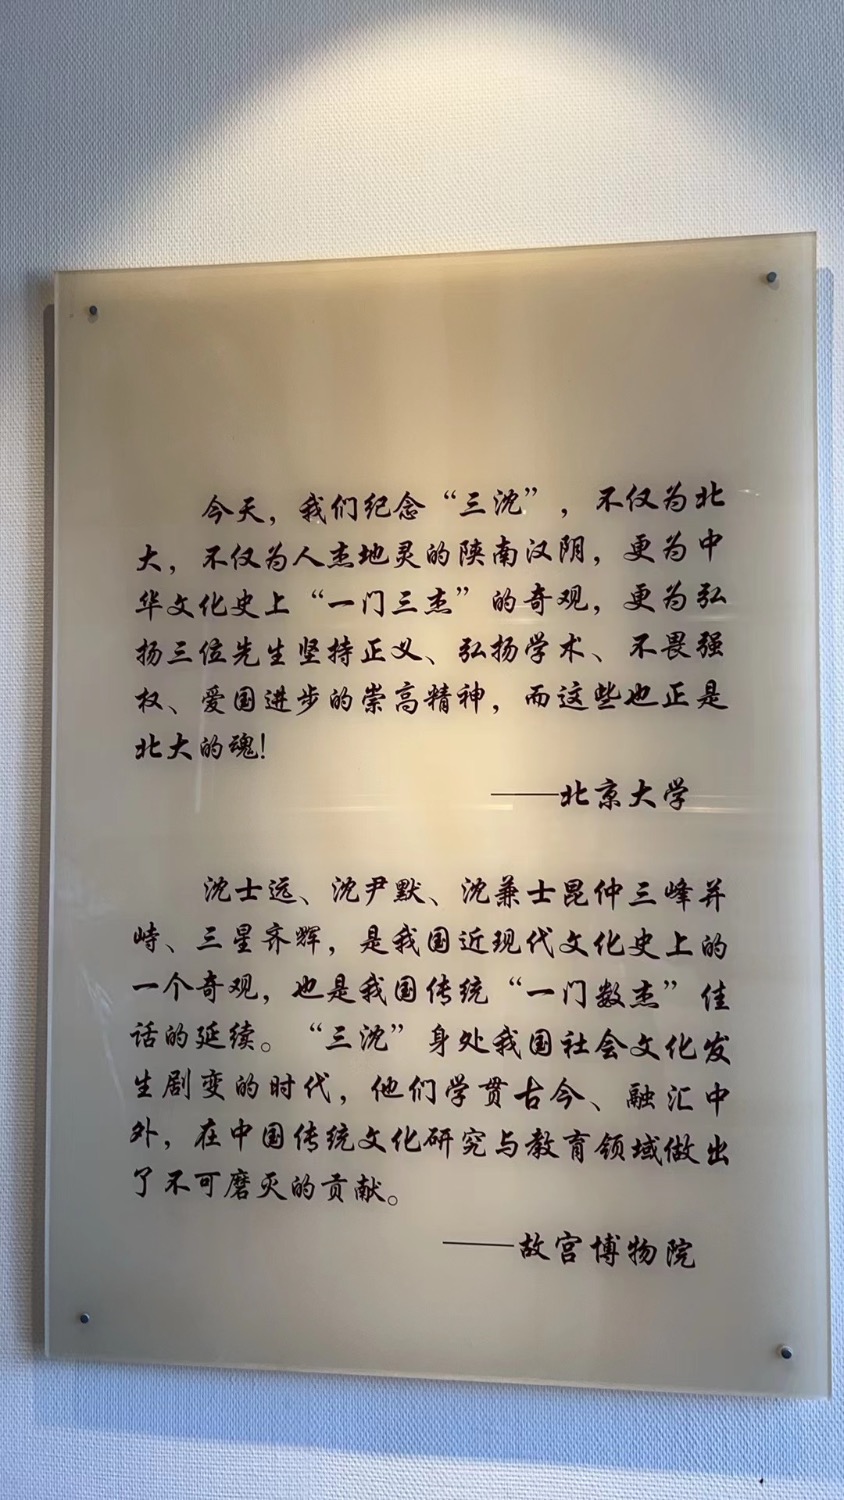 今天，我们纪念“三沈”，不仅为北
大，不仅为人杰地灵的陕南汉阴，更为中
华文化史上“一门三杰”的奇观，更为弘
扬三位先生坚持正义、弘扬学术、不畏强
权、爱国进步的崇高精神，而这些也正是
北大的魂！
——北京大学
沈士远、沈尹默、沈兼士昆仲三峰并
峙、三星齐辉，是我国近现代文化史上的
一个奇观，也是我国传统“一门数杰”佳
话的延续。“三沈”身处我国社会文化发
生剧变的时代，他们学贯古今、融汇中
外，在中国传统文化研究与教育领域做出
了不可磨灭的贡献。
——故宫博物院